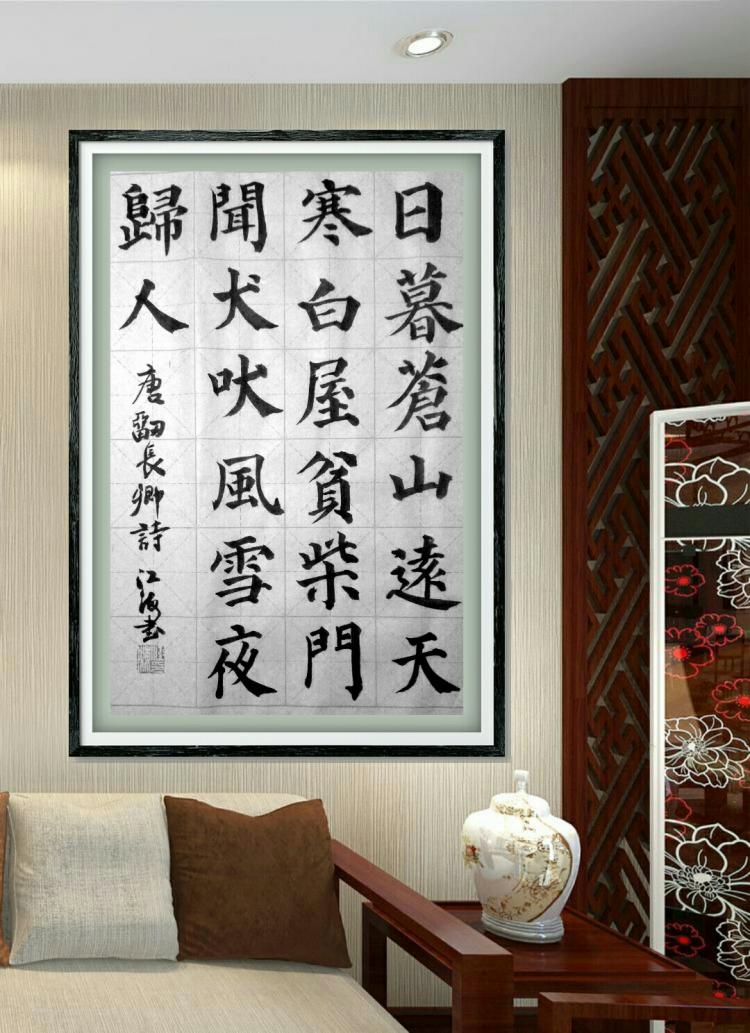 日暮蒼山遠天
寒白屋貧柴門
聞犬吠風雪夜
歸人
唐劉長卿詩 江海书